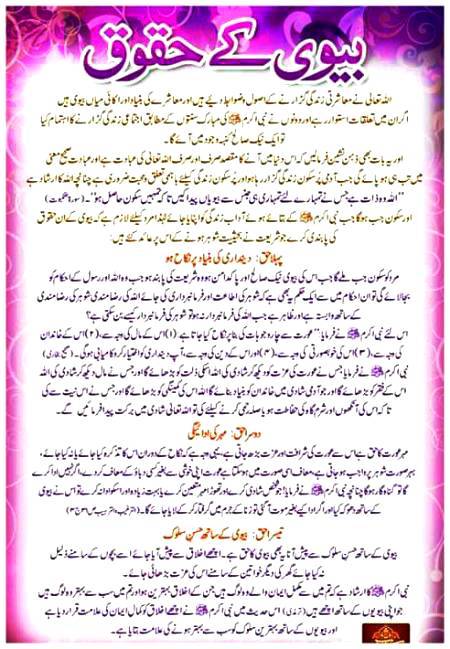 بیوی کے حقوق
اللہ تعالیٰ نے معاشرتی زندگی گزارنے کے اصول وضوابط دیئے ہیں اور معاشرے کی بنیاد اور اکائی میاں بیوی ہیں
اگر ان میں تعلقات استوار رہے اور دونوں نے نبی اکرم ﷺ کی مبارک سنتوں کے مطابق اجتماعی زندگی گزارنے کا اہتمام کیا
تو ایک نیک صالح کنبہ وجود میں آئے گا۔
اور یہ بات بھی ذہن نشین فرمالیں کہ اس دنیا میں آنے کا مقصد صرف اور صرف اللہ تعالیٰ کی عبادت ہے اور عبادت صحیح معنیٰ
میں تب ہی ہو پائے گی جب آدمی پر سکون زندگی گزار رہا ہو اور پر سکون زندگی کیلئے باہمی تعلق ومحبت ضروری ہے چنانچہ اللہ کا ارشاد ہے
”اللہ وہ ذات ہے جس نے تمہارے لئے تمہاری ہی جنس سے بیویاں پیدا کیں تاکہ تمہیں سکون حاصل ہو“۔
اور سکون جب ہوگا جب نبی اکرم ﷺ کے بتائے ہوئے آداب زندگی کو اپنایا جائے لہٰذا مرد کیلئے لازم ہے کہ بیوی کے ان حقوق
کی پابندی کرے جو شریعت نے بحیثیت شوہر ہونے کے اس پر عائد کئے ہیں:
پہلا حق: دینداری کی بنیاد پر نکاح ہو
مرد کو سکون جب ملے گا جب اس کی بیوی نیک صالح اور پاکدامن ہو وہ شریعت کی پابند ہو جب وہ اللہ اور رسول کے احکام کو
بجالائے گی تو ان احکام میں سے ایک حکم یہ بھی ہے کہ شوہر کی اطاعت اور فرمانبرداری کی جائے اللہ کی رضامندی شوہر کی رضامندی
کے ساتھ وابستہ ہے اور ظاہر ہے جب اللہ کی فرمانبردار نہ ہو تو شوہر کی فرمانبردار کیسے بن سکتی ہے؟
اس لئے نبی اکرم ﷺ نے فرمایا ”عورت سے چار وجوہات کی بنا پر نکاح کیا جاتا ہے، (۱) اس کے مال کی وجہ سے، (۲) اس کے خاندان
کی وجہ سے، (۳) اس کی خوبصورتی کی وجہ سے، (۴) اور اس کے دین کی وجہ سے، آپ دینداری کو اختیار کرو کامیابی ہوگی۔ (صحیح بخاری)
نبی اکرم ﷺ نے فرمایا: جس نے عورت کی عزت کو دیکھ کر شادی کی اللہ اسکی ذلت کو بڑھائے گا اور جس نے مال دیکھ کر شادی کی اللہ
اس کے فقر کو بڑھائے گا اور جو آدمی شادی میں خاندان کو بنیاد بنائے گا اللہ اس کی کمینگی کو بڑھائے گا اور جس نے اس نیت سے کی
تاکہ اس کی آنکھوں اور شرم گاہ کی حفاظت ہو یا صلہ رحمی کرنے کیلئے کی تو اللہ تعالیٰ شادی میں برکت پیدا فرمائیں گے۔
دوسرا حق: مہر کی ادائیگی
مہر عورت کا حق ہے اس سے عورت کی شرافت اور عزت بڑھ جاتی ہے، یہی وجہ ہے کہ نکاح کے دوران اس کا تذکرہ کیا جائے یا نہ کیا جائے،
بہر صورت شوہر پر واجب ہو جاتی ہے، معاف اسی صورت میں ہو سکتا ہے عورت اپنی خوشی سے بغیر کسی دباؤ کے معاف کر دے، اگر نہیں ادا کرے
گا تو گناہ گار ہوگا چنانچہ نبی اکرم ﷺ نے فرمایا! جو شخص شادی کرے اور تھوڑا مہر متعین کرے یا بہت زیادہ اور اسکو ادا نہ کرے تو اس نے بیوی
کے ساتھ دھوکہ کیا اور اگر ادا کیے بغیر موت آگئی تو زنا کے جرم میں گرفتار کر کے لایا جائے گا۔
تیسرا حق: بیوی کے ساتھ حسن سلوک
بیوی کے ساتھ حسن سلوک سے پیش آنا یہ بھی بیوی کا حق ہے۔ اچھے اخلاق سے پیش آیا جائے اسے بچوں کے سامنے ذلیل
نہ کیا جائے گھر کی دیگر خواتین کے سامنے اس کی عزت بڑھائی جائے۔
نبی اکرم ﷺ کا ارشاد ہے کہ تم میں سے مکمل ایمان والے وہ لوگ ہیں جن کے اخلاق اچھے ہوں اور تم میں سب سے بہترین وہ لوگ ہیں
جو اپنی بیویوں کے ساتھ اچھے ہیں (ترمذی) اس حدیث میں نبی اکرم ﷺ نے اچھے اخلاق کو کمال ایمان کی علامت قرار دیا ہے
اور بیویوں کے ساتھ بہترین سلوک کو سب سے بہتر ہونے کی علامت بتایا ہے۔